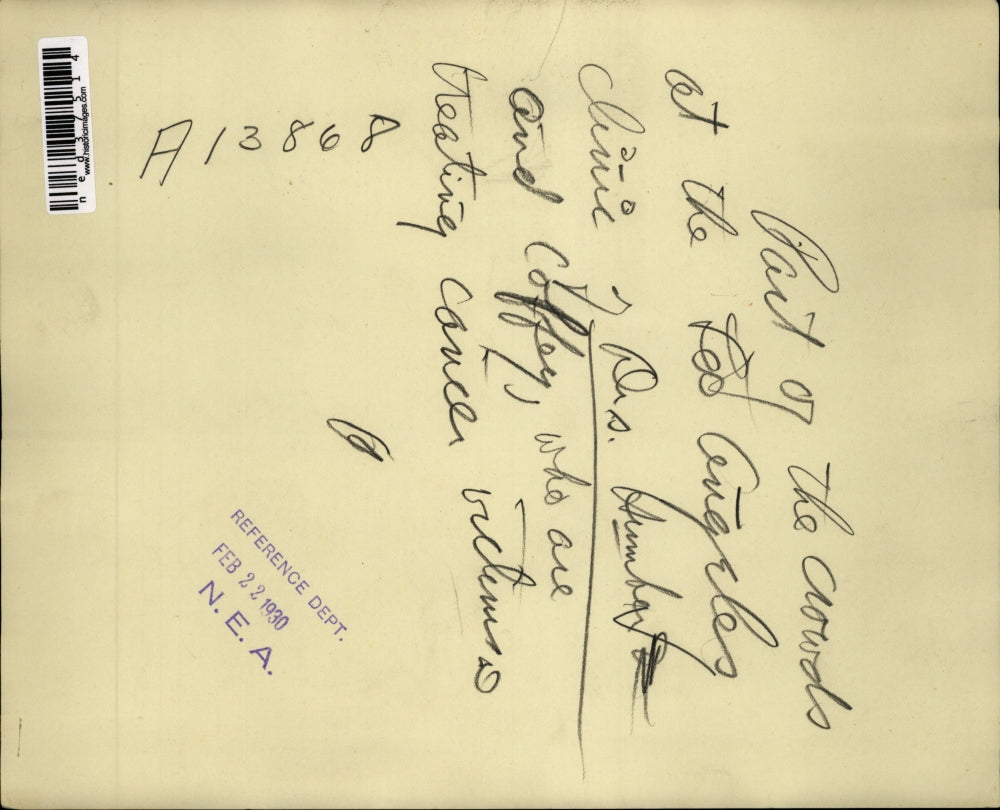 Part of the crowds
at the Los Angeles
clinic of Drs. Humber
and Coffey, who are
treating cancer victims
A13868
REFERENCE DEPT.
FEB 22 1930
N. E. A.
www.historicimages.com